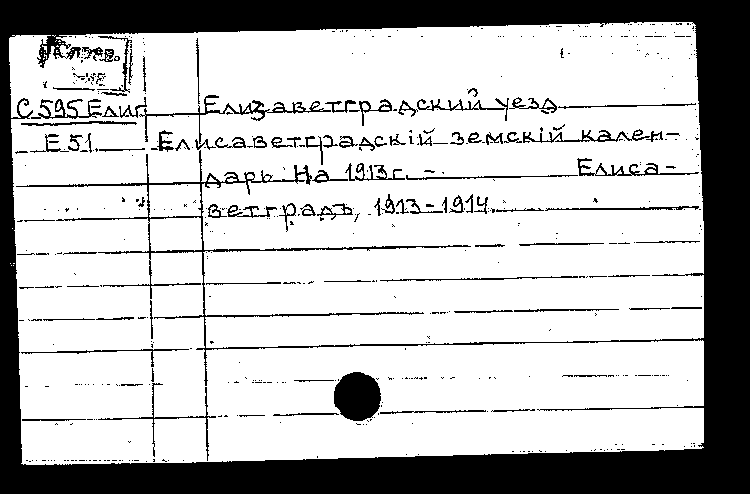 С595 Елиг Елизаветградский уезд
Е51 Елисаветградскій земскій кален-
дарь. На 1913г. - Елиса-
ветградъ, 1913-1914.